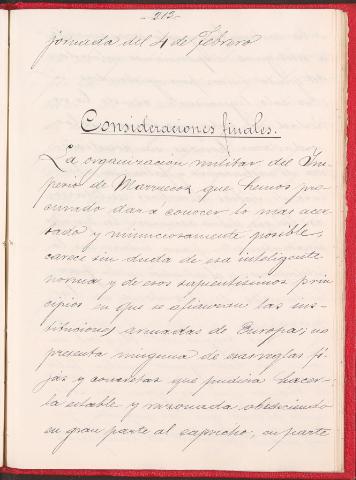 -212-
jornada del 4 de Febrero
Consideraciones finales.
La organización militar del Im-
perio de Marruecos que hemos pro-
curado dar á conocer lo mas acer-
tada y minuciosamente posible,
carece sin duda de esa inteligente
norma y de esos sapientísimos prin-
cipios en que se afianzan las ins-
tituciones armadas de Europa; no
presenta ninguna de esas reglas fi-
jas y concretas que pudiera hacer-
la estable y razonada obedeciendo
en gran parte al capricho, en parte